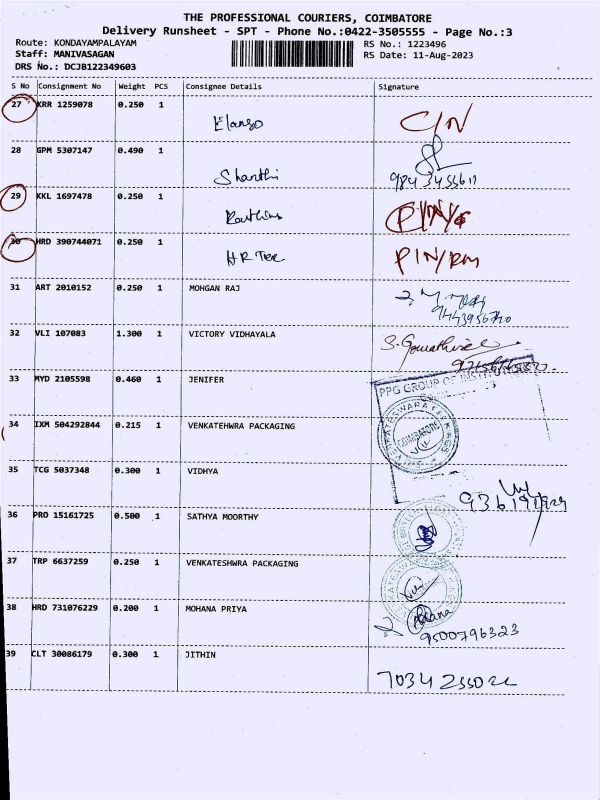 THE PROFESSIONAL COURIERS, COIMBATORE
Delivery Runsheet - SPT - Phone No.:0422-3505555 - Page No.:3
Route: KONDAYAMPALAYAM RS No.: 1223496
Staff: MANIVASAGAN RS Date: 11-Aug-2023
DRS No.: DCJB122349603
S No Consignment No Weight PCS Consignee Details Signature
27 KRR 1259078 0.250 1
Elango
28 GPM 5307147 0.490 1
Shanthi
29 KKL 1697478 0.250 1
30 HRD 390744071 0.250 1
HR Tex P/N/RM
31 ART 2010152 0.250 1 MOHGAN RAJ
32 VLI 107083 1.300 1 VICTORY VIDHAYALA
33 MYD 2105598 0.460 1 JENIFER
PPG GROUP OF
34 IXM 504292844 0.215 1 VENKATEHWRA PACKAGING
COIMBATORE
35 TCG 5037348 0.300 1 VIDHYA
36 PRO 15161725 0.500 1 SATHYA MOORTHY
37 TRP 6637259 0.250 1 VENKATESHWRA PACKAGING
38 HRD 731076229 0.200 1 MOHANA PRIYA
9500796323
39 CLT 30086179 0.300 1 JITHIN